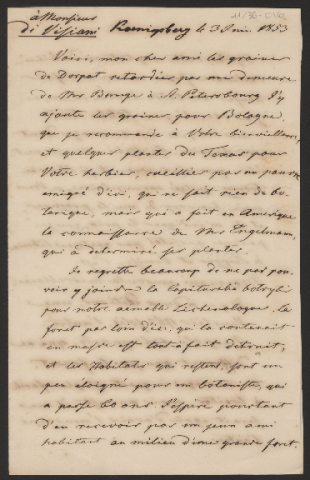 à Monsieur
de Visiani
Koenigsberg le 3 Juin 1853
Voici, mon cher ami les graines
de Dorpat retardées par ma demeure
de Mr Bunge à S. Petersbourg. J'y
ajoute les graines pour Bologne,
que je recommande à Votre bienveillance,
et quelques plantes du Texas pour
Votre herbier, cueillies par un pauvre
emigré d'ici, qui ne sait rien de bo-
tanique, mais qui a fait en Amerique
la connaissance de Mr Engelmann,
qui a determiné ses plantes.
Je regrette beaucoup de ne pas pou-
voir y joindre la
pour notre aimable Lichenologue. La
foret pas loin d'ici, qui la contenait
en masse est tout à fait detruit;
et les habitats qui restent, sont un
peu eloigné pour un botaniste, qui
a passé 60 ans. J'espère pourtant
d'en recevoir par un jeune ami
habitant au milieu d'une grande foret.